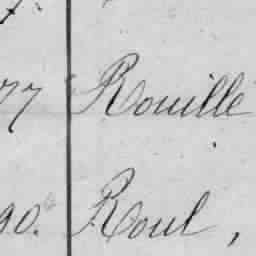 77 Rouille
90. Roul,